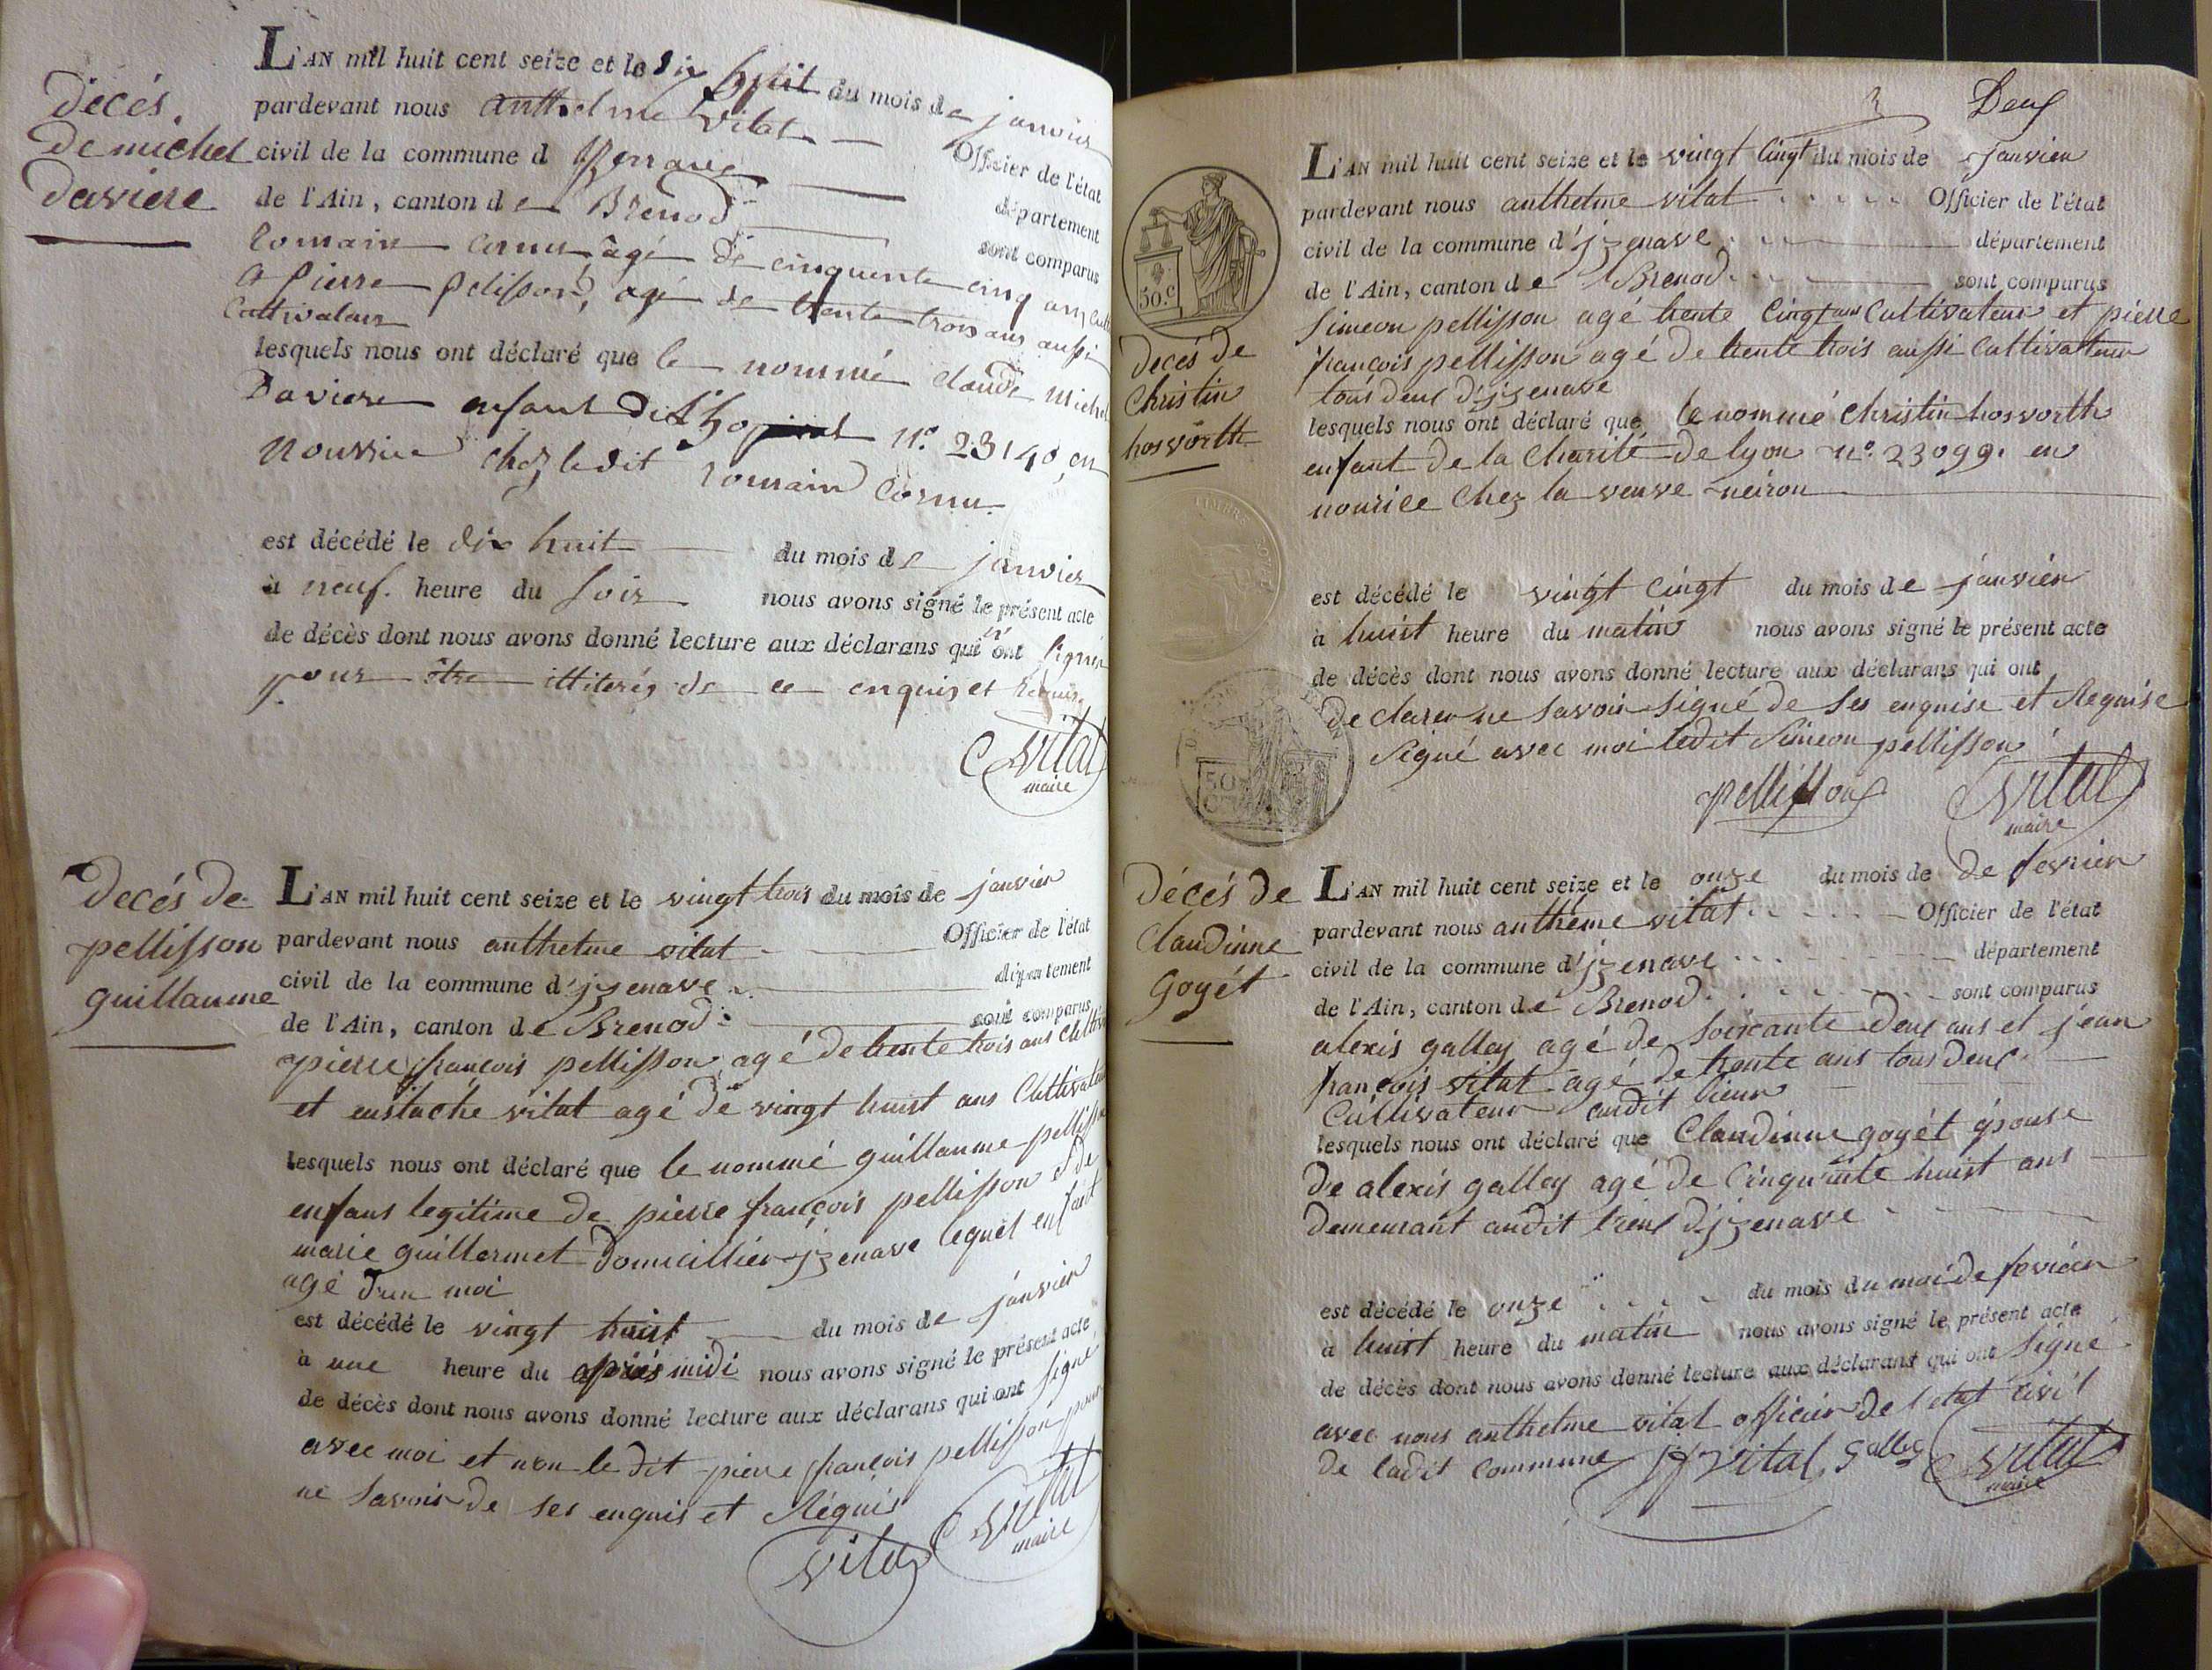 décés.
de michel
daviere
L'AN mil huit cent seize et le dix huit du mois de janvier
pardevant nous anthelme vital Officier de l'état
civil de la commune d yzenave département
de l'Ain, canton de Brenod sont comparus
Romain Cornu, agé de cinquente cinq ans
& Pierre Pelisson, agé de trente trois ans aussi
Cultivateur
lesquels nous ont déclaré que le nommé claude michel
Daviere enfant de L'hopital N.º 23140, en
Nourrice chez ledit romain Cornu
est décédé le dix huit du mois de janvier
à neuf. heure du soir nous avons signé le présent acte
de décès dont nous avons donné lecture aux déclarans qui n'ont signé
pour être illiterés de ce enquis et requis.
Vital
maire
décés de
pellisson
guillaume
L'AN mil huit cent seize et le vingt trois du mois de janvier
pardevant nous anthelme vital Officier de l'état
civil de la commune d'jzenave département
de l'Ain, canton de Brenod sont comparus
pierre françois pellisson agé de trente trois ans
et eustache vital agé de vingt huist ans Cultivateur
lesquels nous ont déclaré que le nommé guillaume pellisson
enfans legitime de pierre françois pellisson & de
marie guillermet domicillier jzenave lequel enfant
agé d'un moi
est décédé le vingt huist du mois de janvier
à une heure du apriés midi nous avons signé le présent acte
de décès dont nous avons donné lecture aux déclarans qui ont signé
avec moi et non le dit pierre françois pellisson pour
ne savoir de ses enquis et Réquis
vital
Vital
maire
2 Deux
50.C
TIMBRE
50
décés de
Christin
hosvorth
L'AN mil huit cent seize et le vingt cingt du mois de Janvier
pardevant nous anthelme vital Officier de l'état
civil de la commune d'jzenave département
de l'Ain, canton de Brenod sont comparus
Simeon pellisson agé trente Cingt ans Cultivateur et pierre
françois pellisson agé de trente trois aussi Cultivateur
tous deux d'jzenave
lesquels nous ont déclaré que le nommé Christin hosvorth
enfant de la Charité de lyon nº. 23099. en
nourice Chez la veuve neiron
est décédé le vingt cingt du mois de janvier
à huist heure du matin nous avons signé le présent acte
de décès dont nous avons donné lecture aux déclarans qui ont
de clarer ne savoir signé de ses enquise et Requise
signé avec moi ledit Simeon pellisson
pellisson
Vital
maire
décés de
Claudinne
Goyét
L'AN mil huit cent seize et le onze du mois de de fevrier
pardevant nous anthéme vital Officier de l'état
civil de la commune d'jzenave département
de l'Ain, canton de Brenod sont comparus
alexis galley agé de soixcante deux ans et jean
françois vital agé de trente ans tous deux
Cultivateur audit lieux
lesquels nous ont déclaré que Claudinne goyét épouse
de alexis galley agé de Cinquante huist ans
demeurant audit lieux d'jzenave
est décédé le onze du mois du moi de fevrier
à huist heure du matin nous avons signé le présent acte
de décès dont nous avons donné lecture aux déclarans qui ont signé
avec nous anthelme vital officier de l'etat civil
de ladit commune jf vital Galley Vital
maire